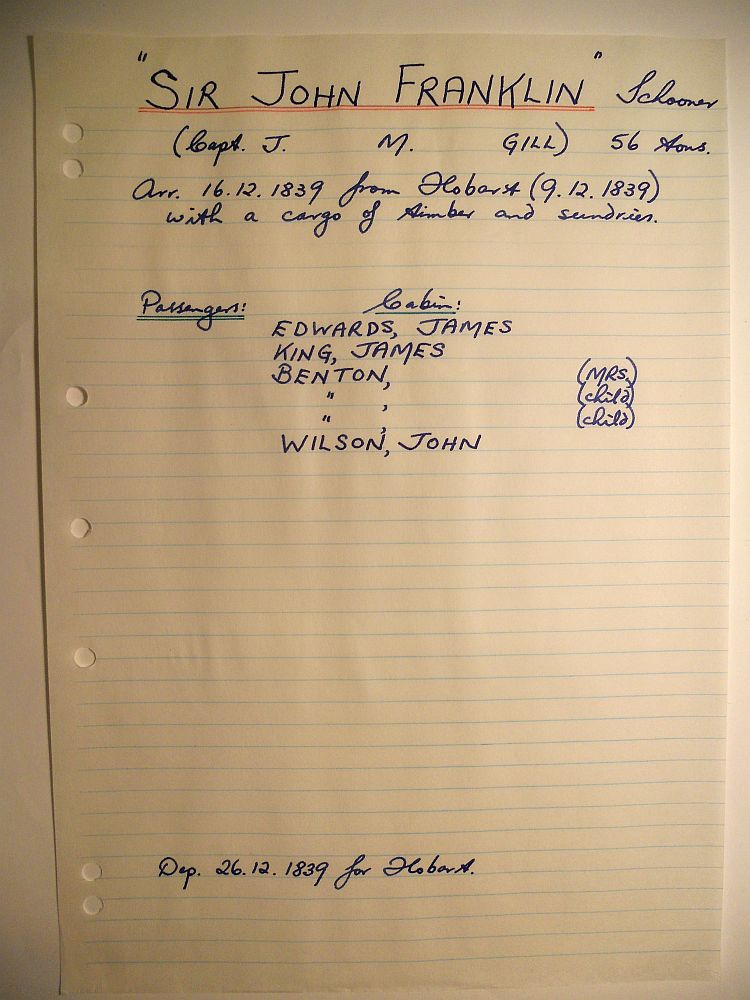 "SIR JOHN FRANKLIN" Schooner
(Capt. J. M. GILL) 56 tons.
Arr. 16.12.1839 from Hobart (9.12.1839)
with a cargo of timber and sundries.
Passengers: Cabin:
EDWARDS, JAMES
KING, JAMES
BENTON, (MRS.)
" , (child)
" , (child)
WILSON, JOHN
Dep. 26.12.1839 for Hobart.